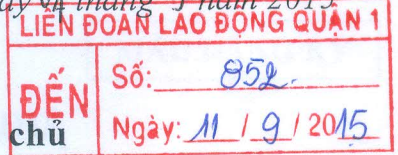 tháng năm 2015
LIÊN ĐOÀN LAO ĐỘNG QUẬN 1
ĐẾN
Số: 852.
Ngày: 11 / 9 / 2015
chủ